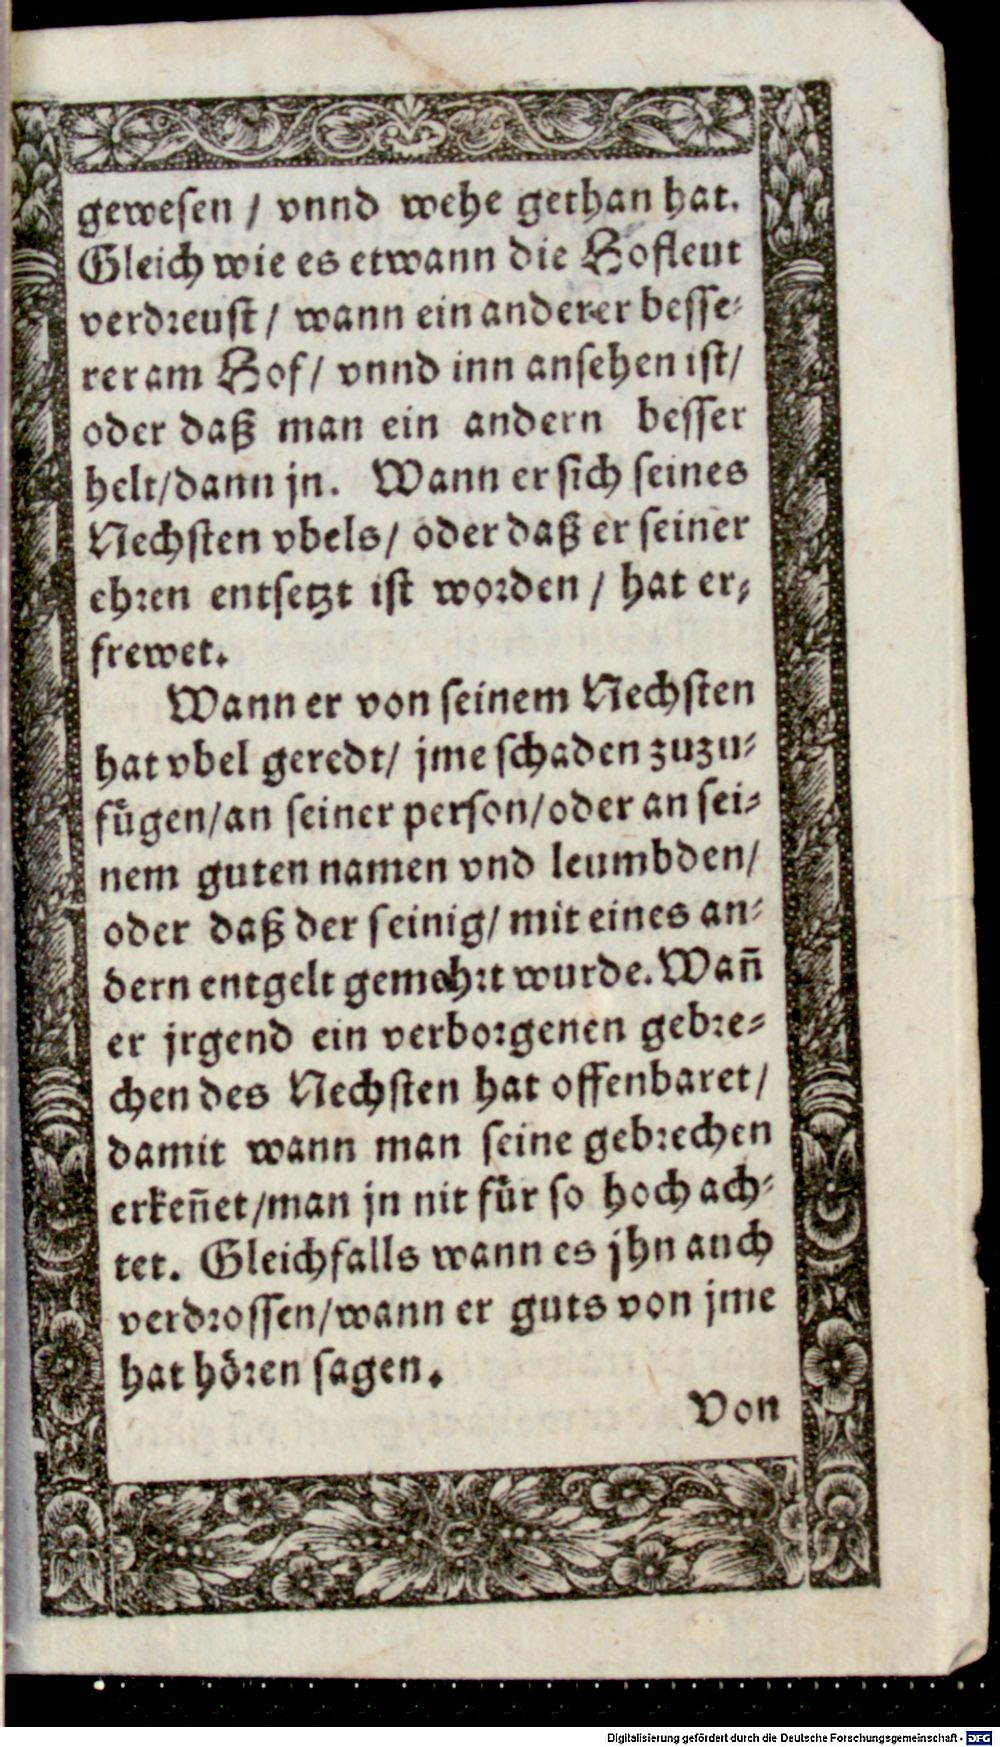 gewesen / vnnd wehe gethan hat.
Gleich wie es etwann die Hofleut
verdreust / wann ein anderer besse-
rer am Hof / vnnd inn ansehen ist /
oder daß man ein andern besser
helt / dann jn. Wann er sich seines
Nechsten vbels / oder daß er seiner
ehren entsetzt ist worden / hat er-
frewet.
Wann er von seinem Nechsten
hat vbel geredt / jme schaden zuzu-
fügen / an seiner person / oder an sei-
nem guten namen vnd leumbden /
oder daß der seinig / mit eines an-
dern entgelt gemehrt wurde. Wañ
er jrgend ein verborgenen gebre-
chen des Nechsten hat offenbaret /
damit wann man seine gebrechen
erkeñet / man jn nit für so hoch ach-
tet. Gleichfalls wann es jhn auch
verdrossen / wann er guts von jme
hat hören sagen.
Von
Digitalisierung gefördert durch die Deutsche Forschungsgemeinschaft - DFG